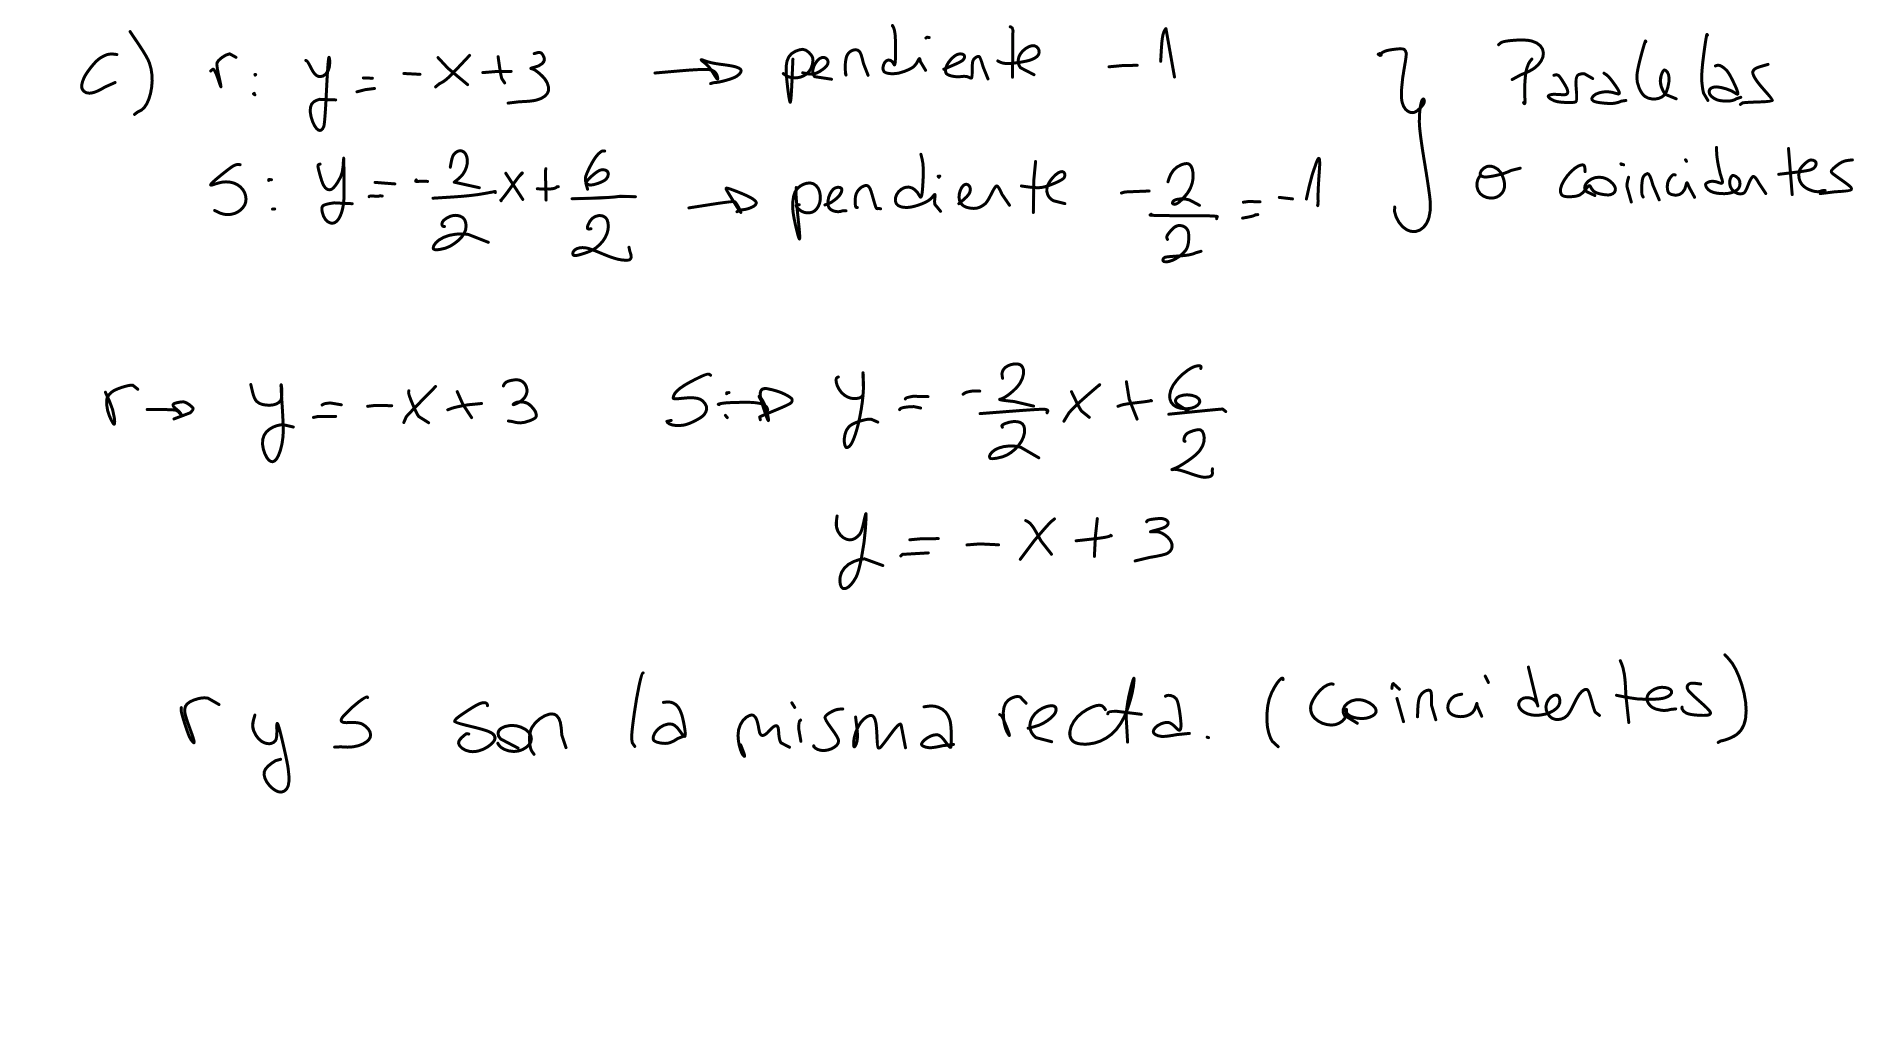 c) r: y = -x+3 → pendiente -1 } Paralelas
s: y = -2/2 x + 6/2 → pendiente -2/2 = -1 } o coincidentes
r → y = -x + 3 s: → y = -2/2 x + 6/2
y = -x + 3
r y s son la misma recta. (coincidentes)